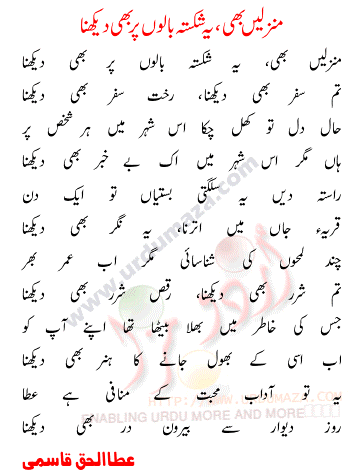 منزلیں بھی، یہ شکستہ بالوں پر بھی دیکھنا
منزلیں بھی، یہ شکستہ بالوں پر بھی دیکھنا
تم سفر بھی دیکھنا، رخت سفر بھی دیکھنا
حال دل تو کھل چکا اس شہر میں ہر شخص پر
ہاں مگر اس شہر میں اک بے خبر بھی دیکھنا
راستہ دیں یہ سلگتی بستیاں تو ایک دن
قریۂ جاں میں اترنا، یہ نگر بھی دیکھنا
چند لمحوں کی شناسائی مگر اب عمر بھر
تم شرر بھی دیکھنا، رقص شرر بھی دیکھنا
جس کی خاطر میں بھلا بیٹھا تھا اپنے آپ کو
اب اسی کے بھول جانے کا ہنر بھی دیکھنا
یہ تو آداب محبت کے منافی ہے عطا
روز دیوار سے بیرون در بھی دیکھنا
عطاالحق قاسمی
www.urdumaza.com
اردو مزا
WWW.URDUMAZA.COM
ENABLING URDU MORE AND MORE